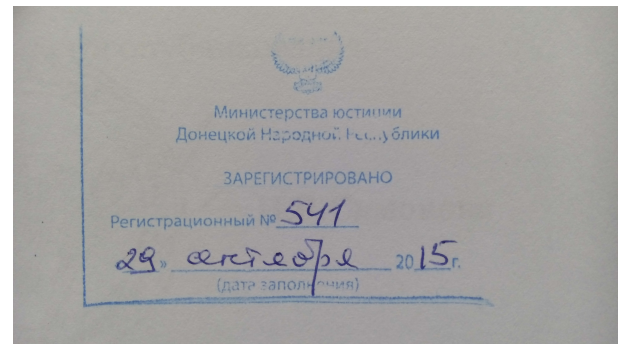 Министерства юстиции
Донецкой Народной Республики
ЗАРЕГИСТРИРОВАНО
Регистрационный № 541
29 » октября 2015 г.
(дата заполнения)